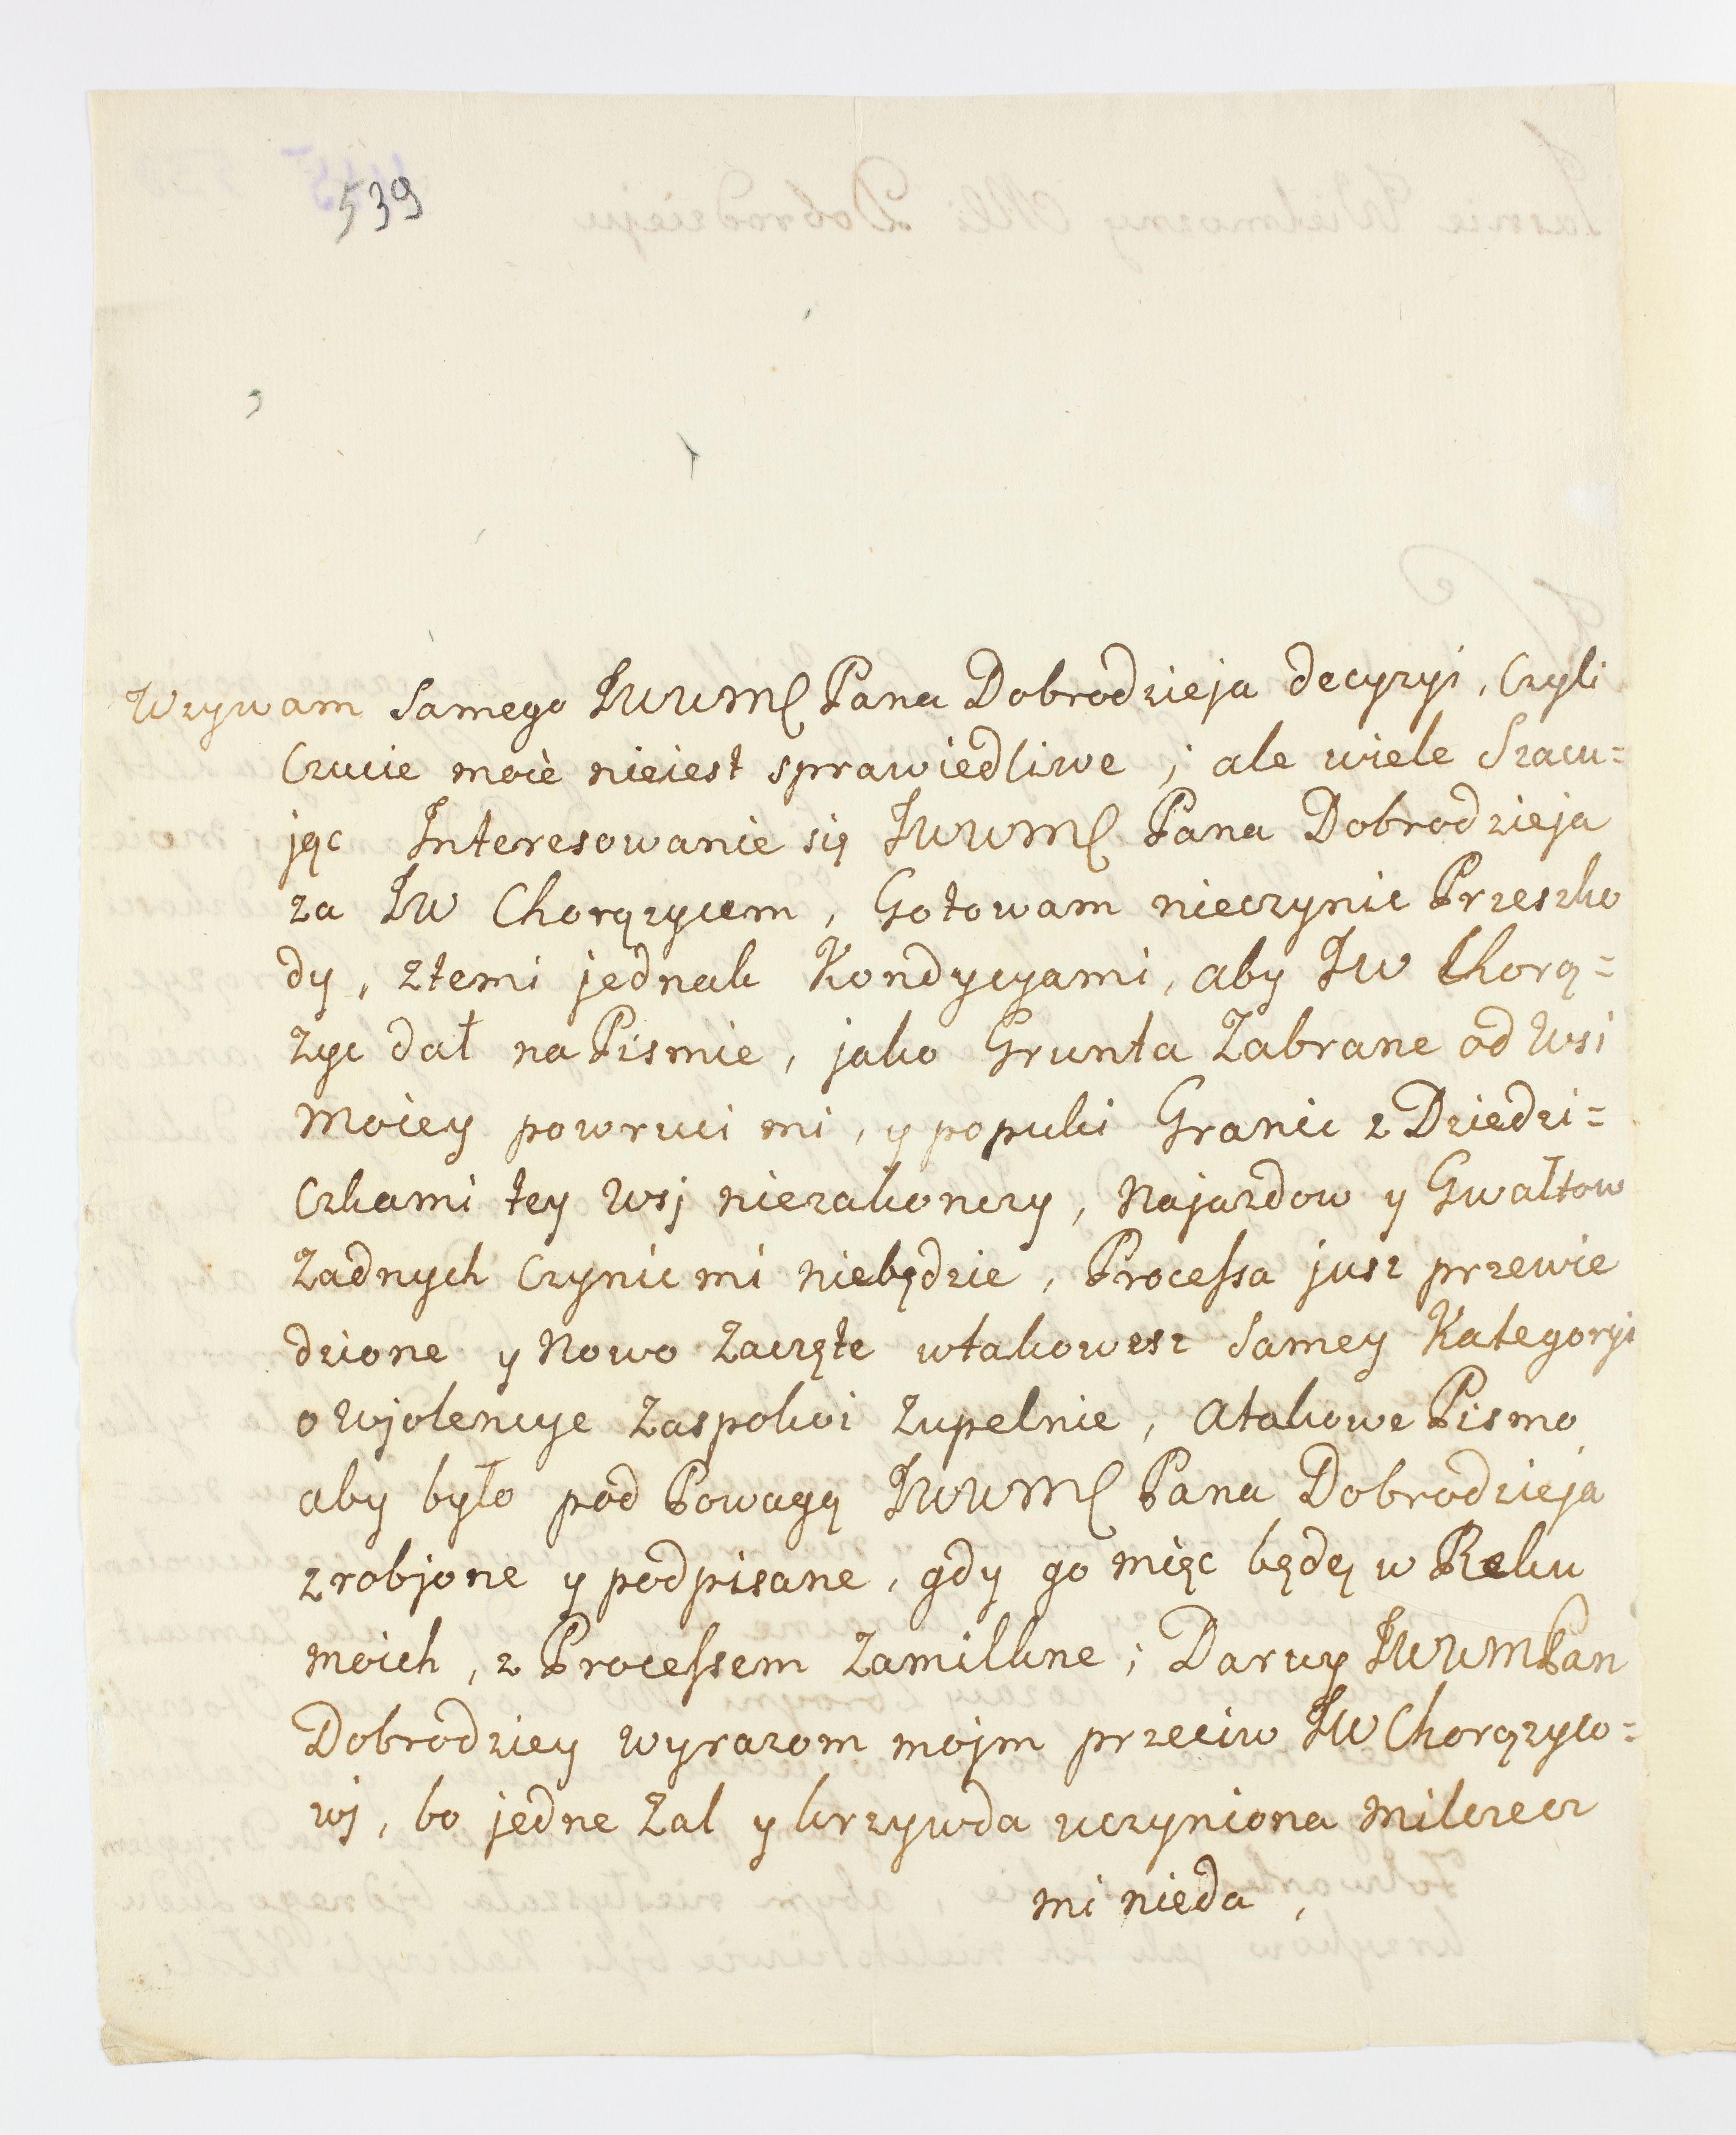 539
Wzywam Samego JWWMć Pana Dobrodzieja decyzyi, Czyli
Czucie moiè nieiest sprawiedliwe ; ale wiele Szacu=
jąc Interesowanie się JWWMć Pana Dobrodzieja
za JW Chorązycem, Gotowam nieczynic Przeszko
dy, ztemi jednak Kondycyami, aby JW Chorą=
zyc dał na Pismie, jako Grunta Zabrane od Wsi
Moiey powruci mi, y popuki Granic z Dziedzi=
Czkami tey Wsj niezakonczy, Najazdow y Gwałtow
Zadnych Czynic mi niebędzie, Processa jusz przewie
dzione y Nowo Zaczęte wtakowesz Samey Kategoryi
o Wjolencye Zaspokoi Zupelnie, Atakowe Pismo
aby było pod Powagą JWWMć Pana Dobrodzieja
zrobjone y podpisane, gdy go mięc będę w Reku
moich, z Processem Zamilkne ; Daruy JWWMPan
Dobrodziey wyrazom mojm przeciw JW Chorązyco=
wj, bo jedne Zal y krzywda uczyniona Milczecz
mi nieda,